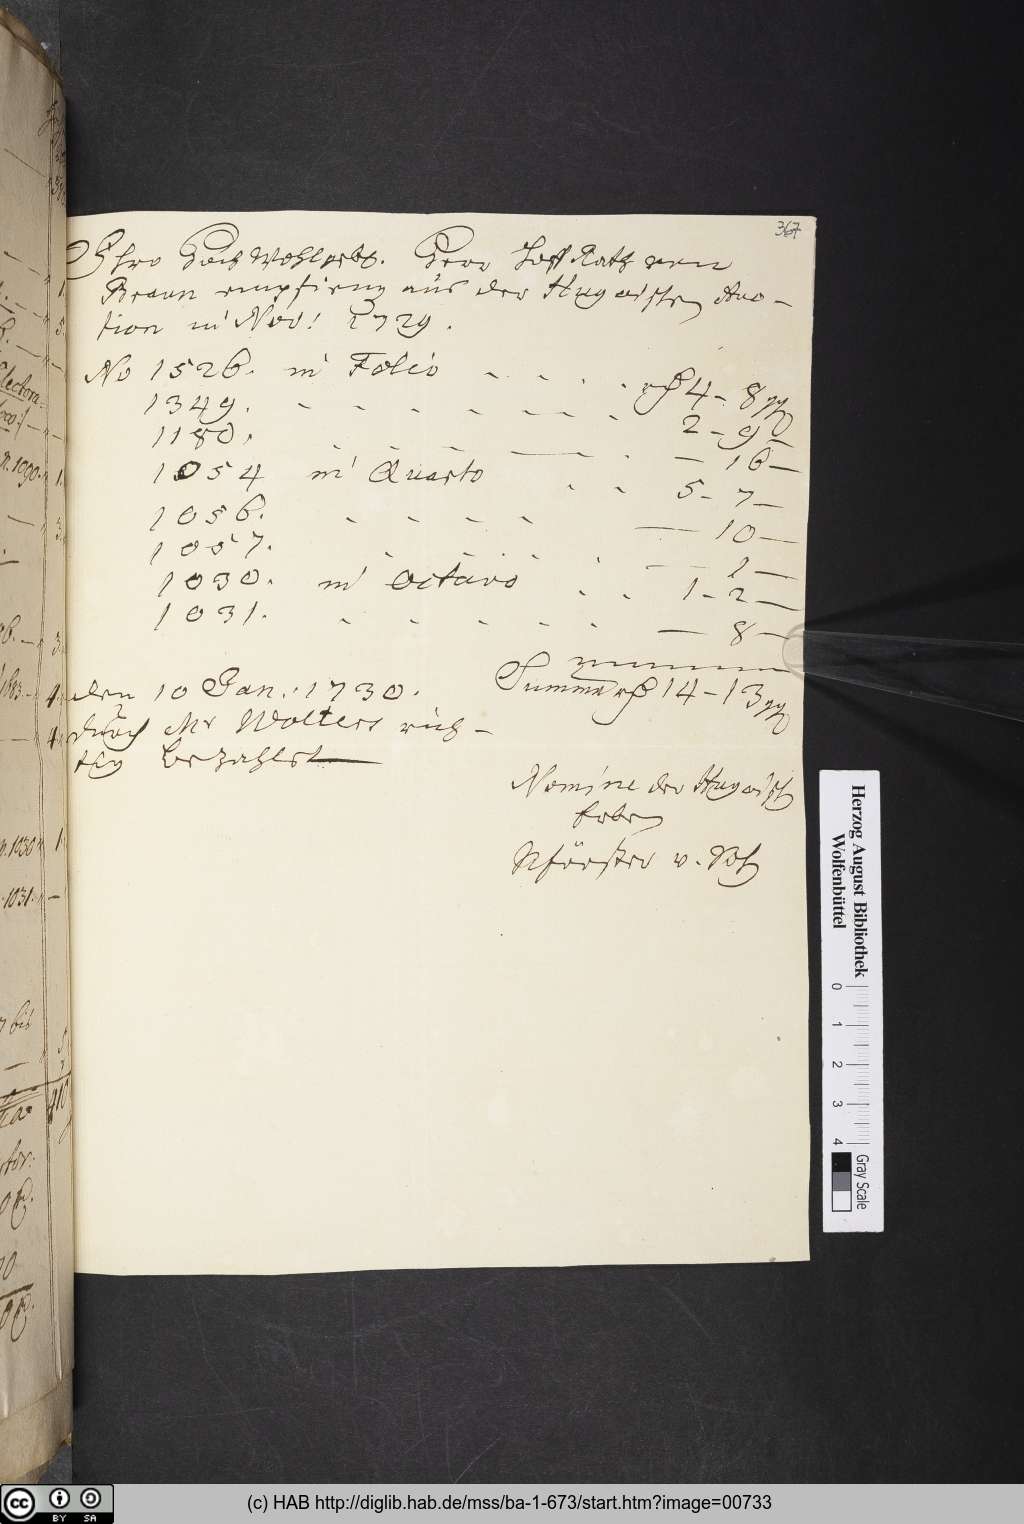 367
Ihro Hoch Wohlgeb. Herr Hoff Rath von
Braun empfieng aus der Hugoischen Auc-
tion in Nov: 1729.
No 1526. in Folio - - - - rthl 4 - 8 ggl
1349. - - - - - - 2 - 9 -
1180. - - - - - - 16 -
1054 in Quarto - - 5 - 7 -
1056. - - - - - 10 -
1057. - - - - - 1 -
1030. in Octavo - - 1 - 2 -
1031. - - - - - - 8 -
Summa rthl 14 - 13 ggl
den 10 Jan: 1730.
durch Mr Wolters rich-
tig bezahlet
Nomine der Hugoisch
Erben
Förster
Electora
n. 1090.
1683.
n. 1030
1031.
bis
Herzog August Bibliothek
Wolfenbüttel
0 1 2 3 4
Gray Scale
cc BY SA
(c) HAB http://diglib.hab.de/mss/ba-1-673/start.htm?image=00733